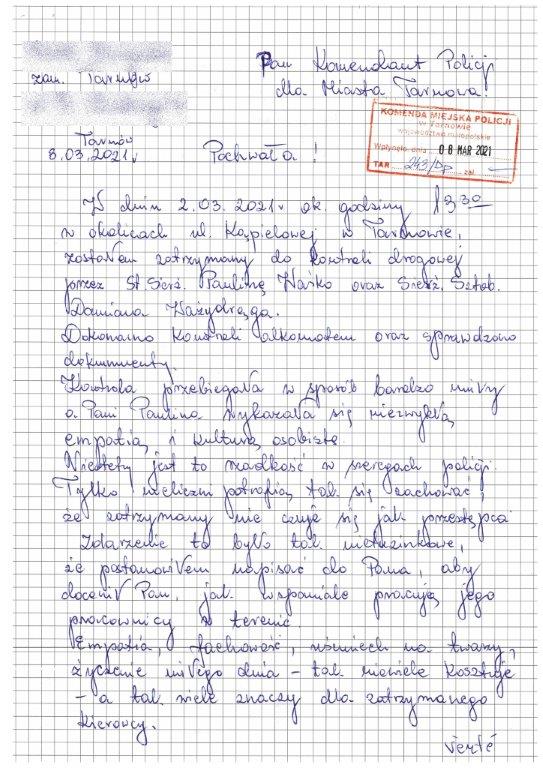 Pan Komendant Policji
zam. Tarnów
dla Miasta Tarnowa!
KOMENDA MIEJSKA POLICJI
w Tarnowie
województwo małopolskie
Wpłynęło dnia 08 MAR 2021
TAR 243/ zał.
Tarnów
8.03.2021r
Pochwała!
W dniu 2.03.2021r ok. godziny 13.30
w okolicach ul. Kąpielowej w Tarnowie,
zostałem zatrzymany do kontroli drogowej
przez St. Sierż. Paulinę Waśko oraz Sierż. Sztab.
Damiana Ważydrąga.
Dokonano kontroli alkomatem oraz sprawdzono
dokumenty.
Kontrola przebiegała w sposób bardzo miły
a Pani Paulina wykazała się niezwykłą
empatią i kulturą osobistą.
Niestety jest to rzadkość w szeregach policji.
Tylko nieliczni potrafią tak się zachować,
że zatrzymany nie czuje się jak przestępca
Zdarzenie to było tak nietuzinkowe,
że postanowiłem napisać do Pana, aby
docenił Pan, jak wspaniale pracują jego
pracownicy w terenie.
Empatia, fachowość, uśmiech na twarzy,
życzenie miłego dnia - tak niewiele kosztuje
- a tak wiele znaczy dla zatrzymanego
kierowcy.
verte